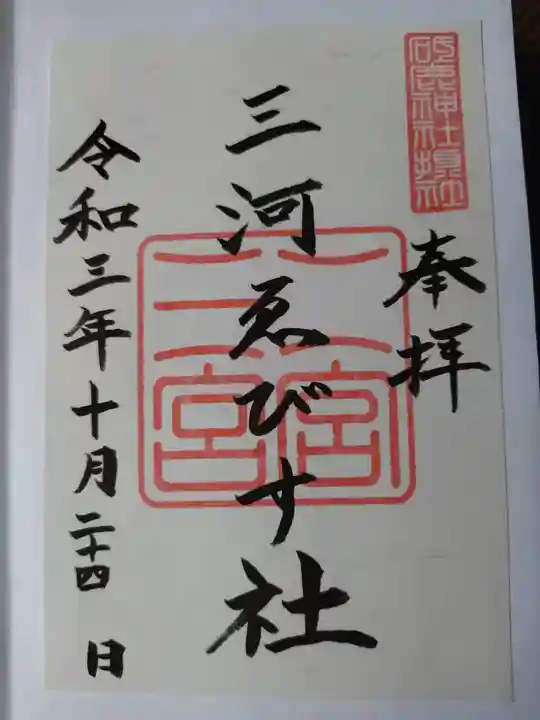 砥鹿神社摂社
奉拝
三河ゑびす社
二宮
三宮
令和三年十月二十四日